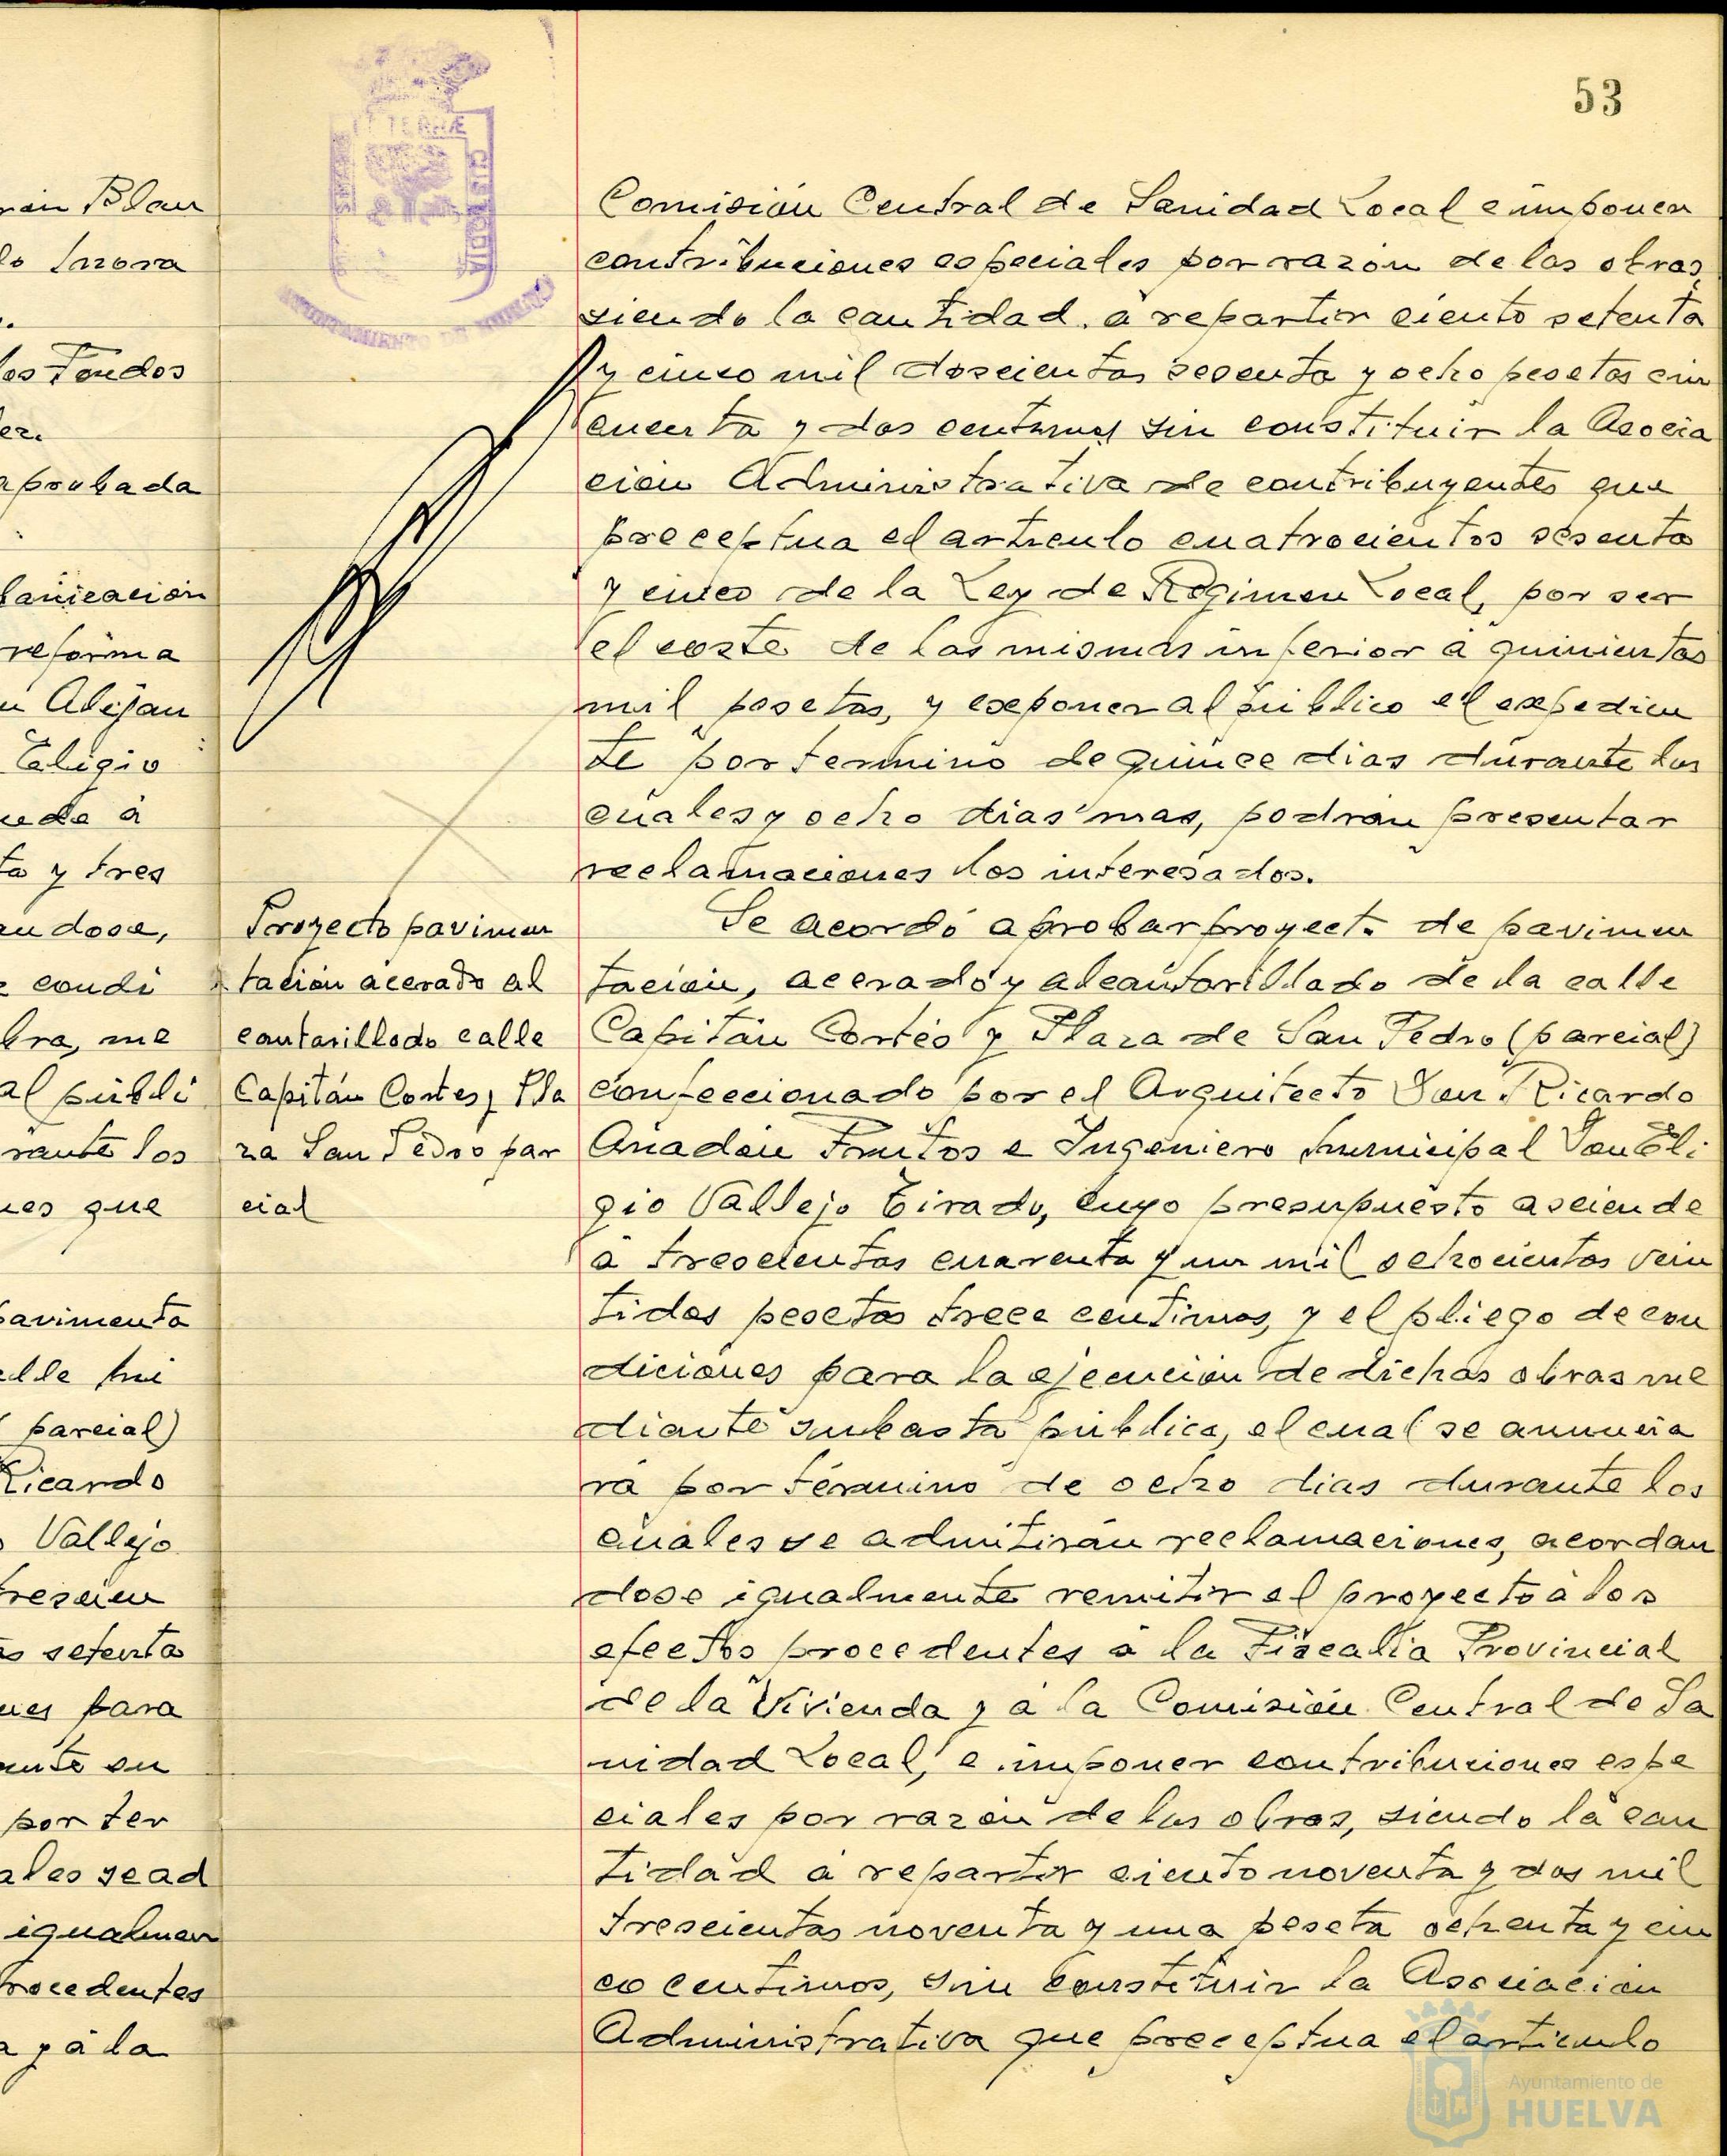 53
Comisión Central de Sanidad Local e imponer
contribuciones especiales por razón de las obras,
siendo la cantidad a repartir ciento setenta
y cinco mil doscientas sesenta y ocho pesetas cin
cuenta y dos centimos sin constituir la Asocia
ción Administrativa de contribuyentes que
preceptua el articulo cuatrocientos sesenta
y cinco de la Ley de Régimen Local, por ser
el coste de las mismas inferior a quinientas
mil pesetas, y exponer al público el expedien
te por termino de quince dias durante los
cuales y ocho dias mas, podrán presentar
reclamaciones los interesados.
Proyecto pavimen
tación acerado al
cantarillado calle
Capitán Cortes y Pla
za San Pedro par
cial
Se acordó aprobar proyecto de pavimen
tación, acerado y alcantarillado de la calle
Capitán Cortés y Plaza de San Pedro (parcial)
confeccionado por el Arquitecto Don Ricardo
Anadón Frutos e Ingeniero Municipal Don Eli
gio Vallejo Tirado, cuyo presupuesto asciende
a trescientas cuarenta y un mil ochocientas vein
tidos pesetas trece centimos, y el pliego de con
diciones para la ejecución de dichas obras me
diante subasta pública, el cual se anuncia
rá por término de ocho dias durante los
cuales se admitirán reclamaciones, acordan
dose igualmente remitir el proyecto a los
efectos procedentes a la Fiscalía Provincial
de la Vivienda y a la Comisión Central de Sa
nidad Local, e imponer contribuciones espe
ciales por razón de las obras, siendo la can
tidad a repartir ciento noventa y dos mil
trescientas noventa y una peseta ochenta y cin
co centimos, sin constituir la Asociación
Administrativa que preceptua el articulo
TERRÆ
CUSTODIA
AYUNTAMIENTO DE HUELVA
Blan
los Fondos
aprobada
reforma
Alejan
Eligio
a y tres
condi
al públi
rante los
que
pavimenta
parcial)
Ricardo
Vallejo
setenta
para
por ter
igualmen
rocedentes
y a la
Ayuntamiento de
HUELVA